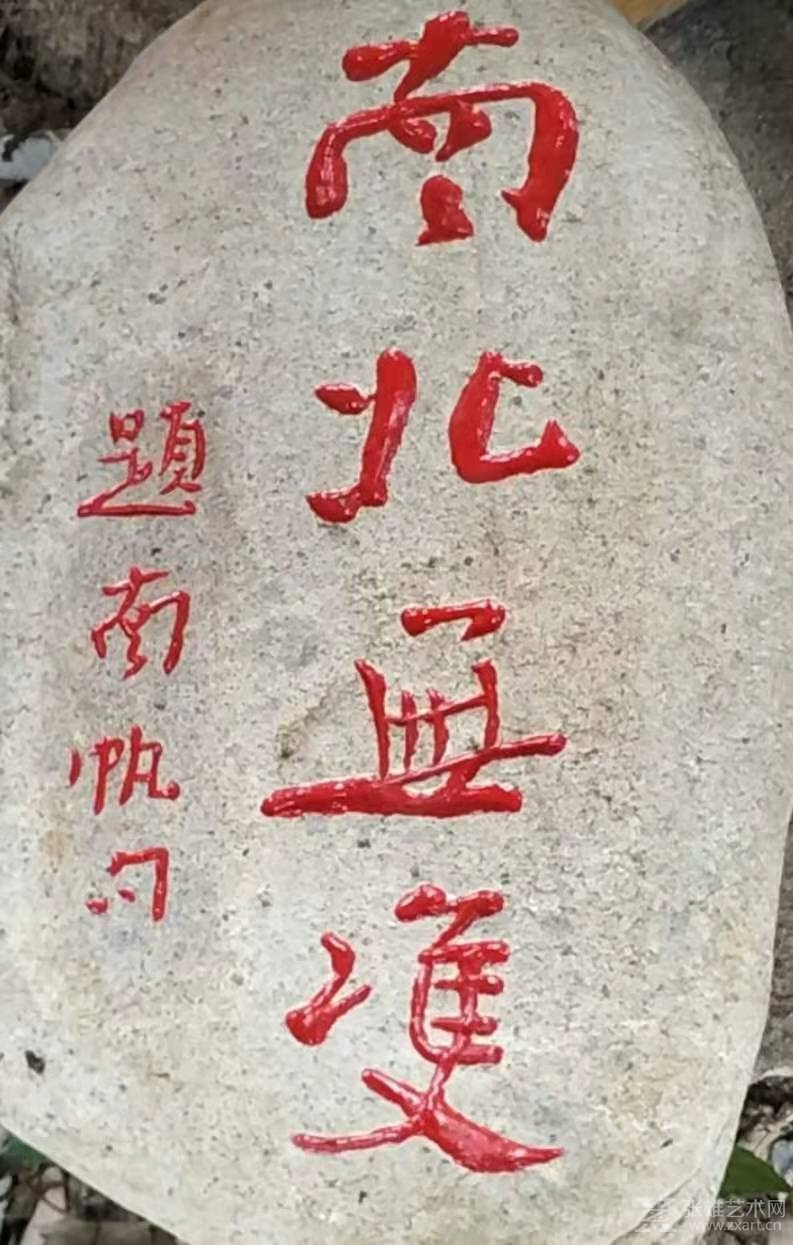 南北無雙
南帆題
张雄艺术网
www.zxart.cn